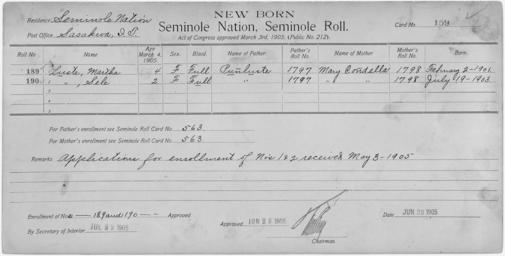 NEW BORN
Residence Seminole Nation
Seminole Nation, Seminole Roll.
Card No.
Post Office Sasakwa, I.T.
Act of Congress approved March 3rd, 1903. (Public No. 212).
Roll No. Name Age March 4, 1905. Sex. Blood. Name of Father. Father's Roll No. Name of Mother. Mother's Roll No. Born.
189 Luste, Martha 4 F Full Punluste 1797 Mary Condella 1798 February 2-1901
190 " , Sele 2 F Full " 1797 " " 1798 July 19-1903
For Father's enrollment see Seminole Roll Card No. 563
For Mother's enrollment see Seminole Roll Card No. 563
Remarks Applications for enrollment of Nos 1&2 received May 3-1905
Enrollment of Nos 189 and 190 Approved
Approved JUN 28 1905
Date JUN 28 1905
By Secretary of Interior JUL 22 1905
Chairman